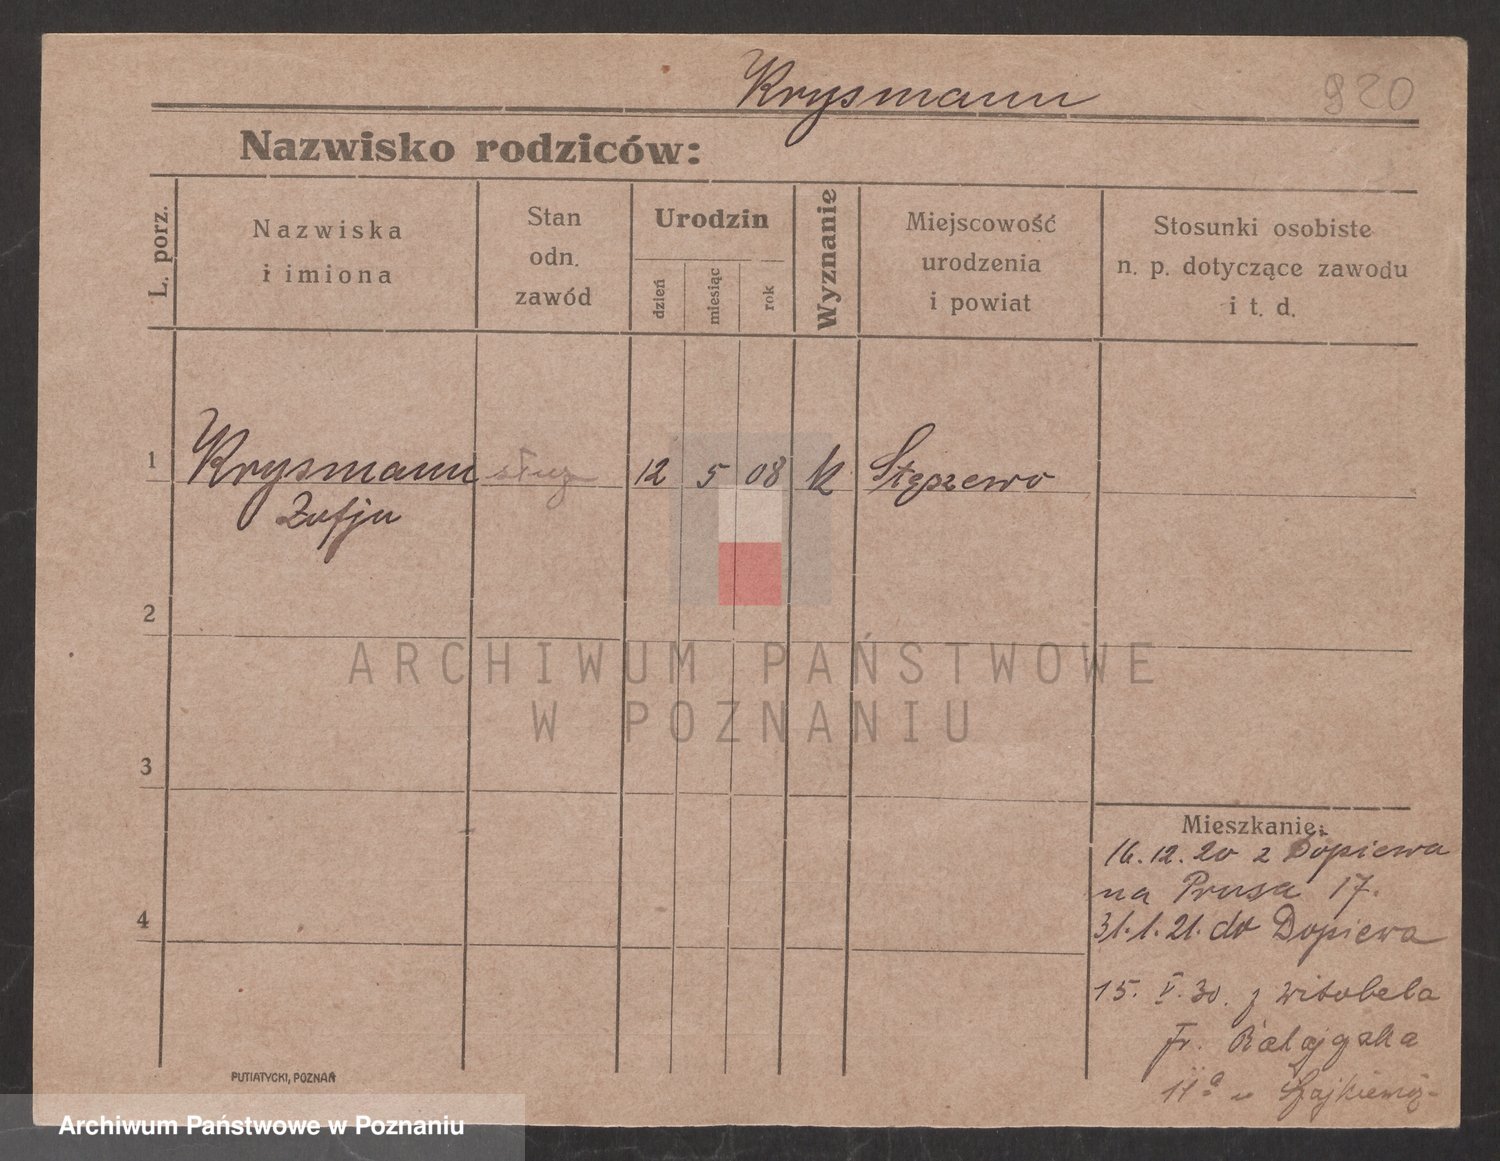 Krysmann
920
Nazwisko rodziców:
L. porz.
Nazwiska
i imiona
Stan
odn.
zawód
Urodzin
dzień
miesiąc
rok
Wyznanie
Miejscowość
urodzenia
i powiat
Stosunki osobiste
n. p. dotyczące zawodu
i t. d.
1
Krysmann służ 12 5 08 k Stęszewo
Zofja
2
ARCHIWUM PAŃSTWOWE
W POZNANIU
3
Mieszkanie:
16.12.20 z Dopiewa
na Prusa 17.
31.1.21. do Dopiewa
4
15. V. 30. z Witobela
Fr. Ratajczaka
11a u
PUTIATYCKI, POZNAŃ
Archiwum Państwowe w Poznaniu